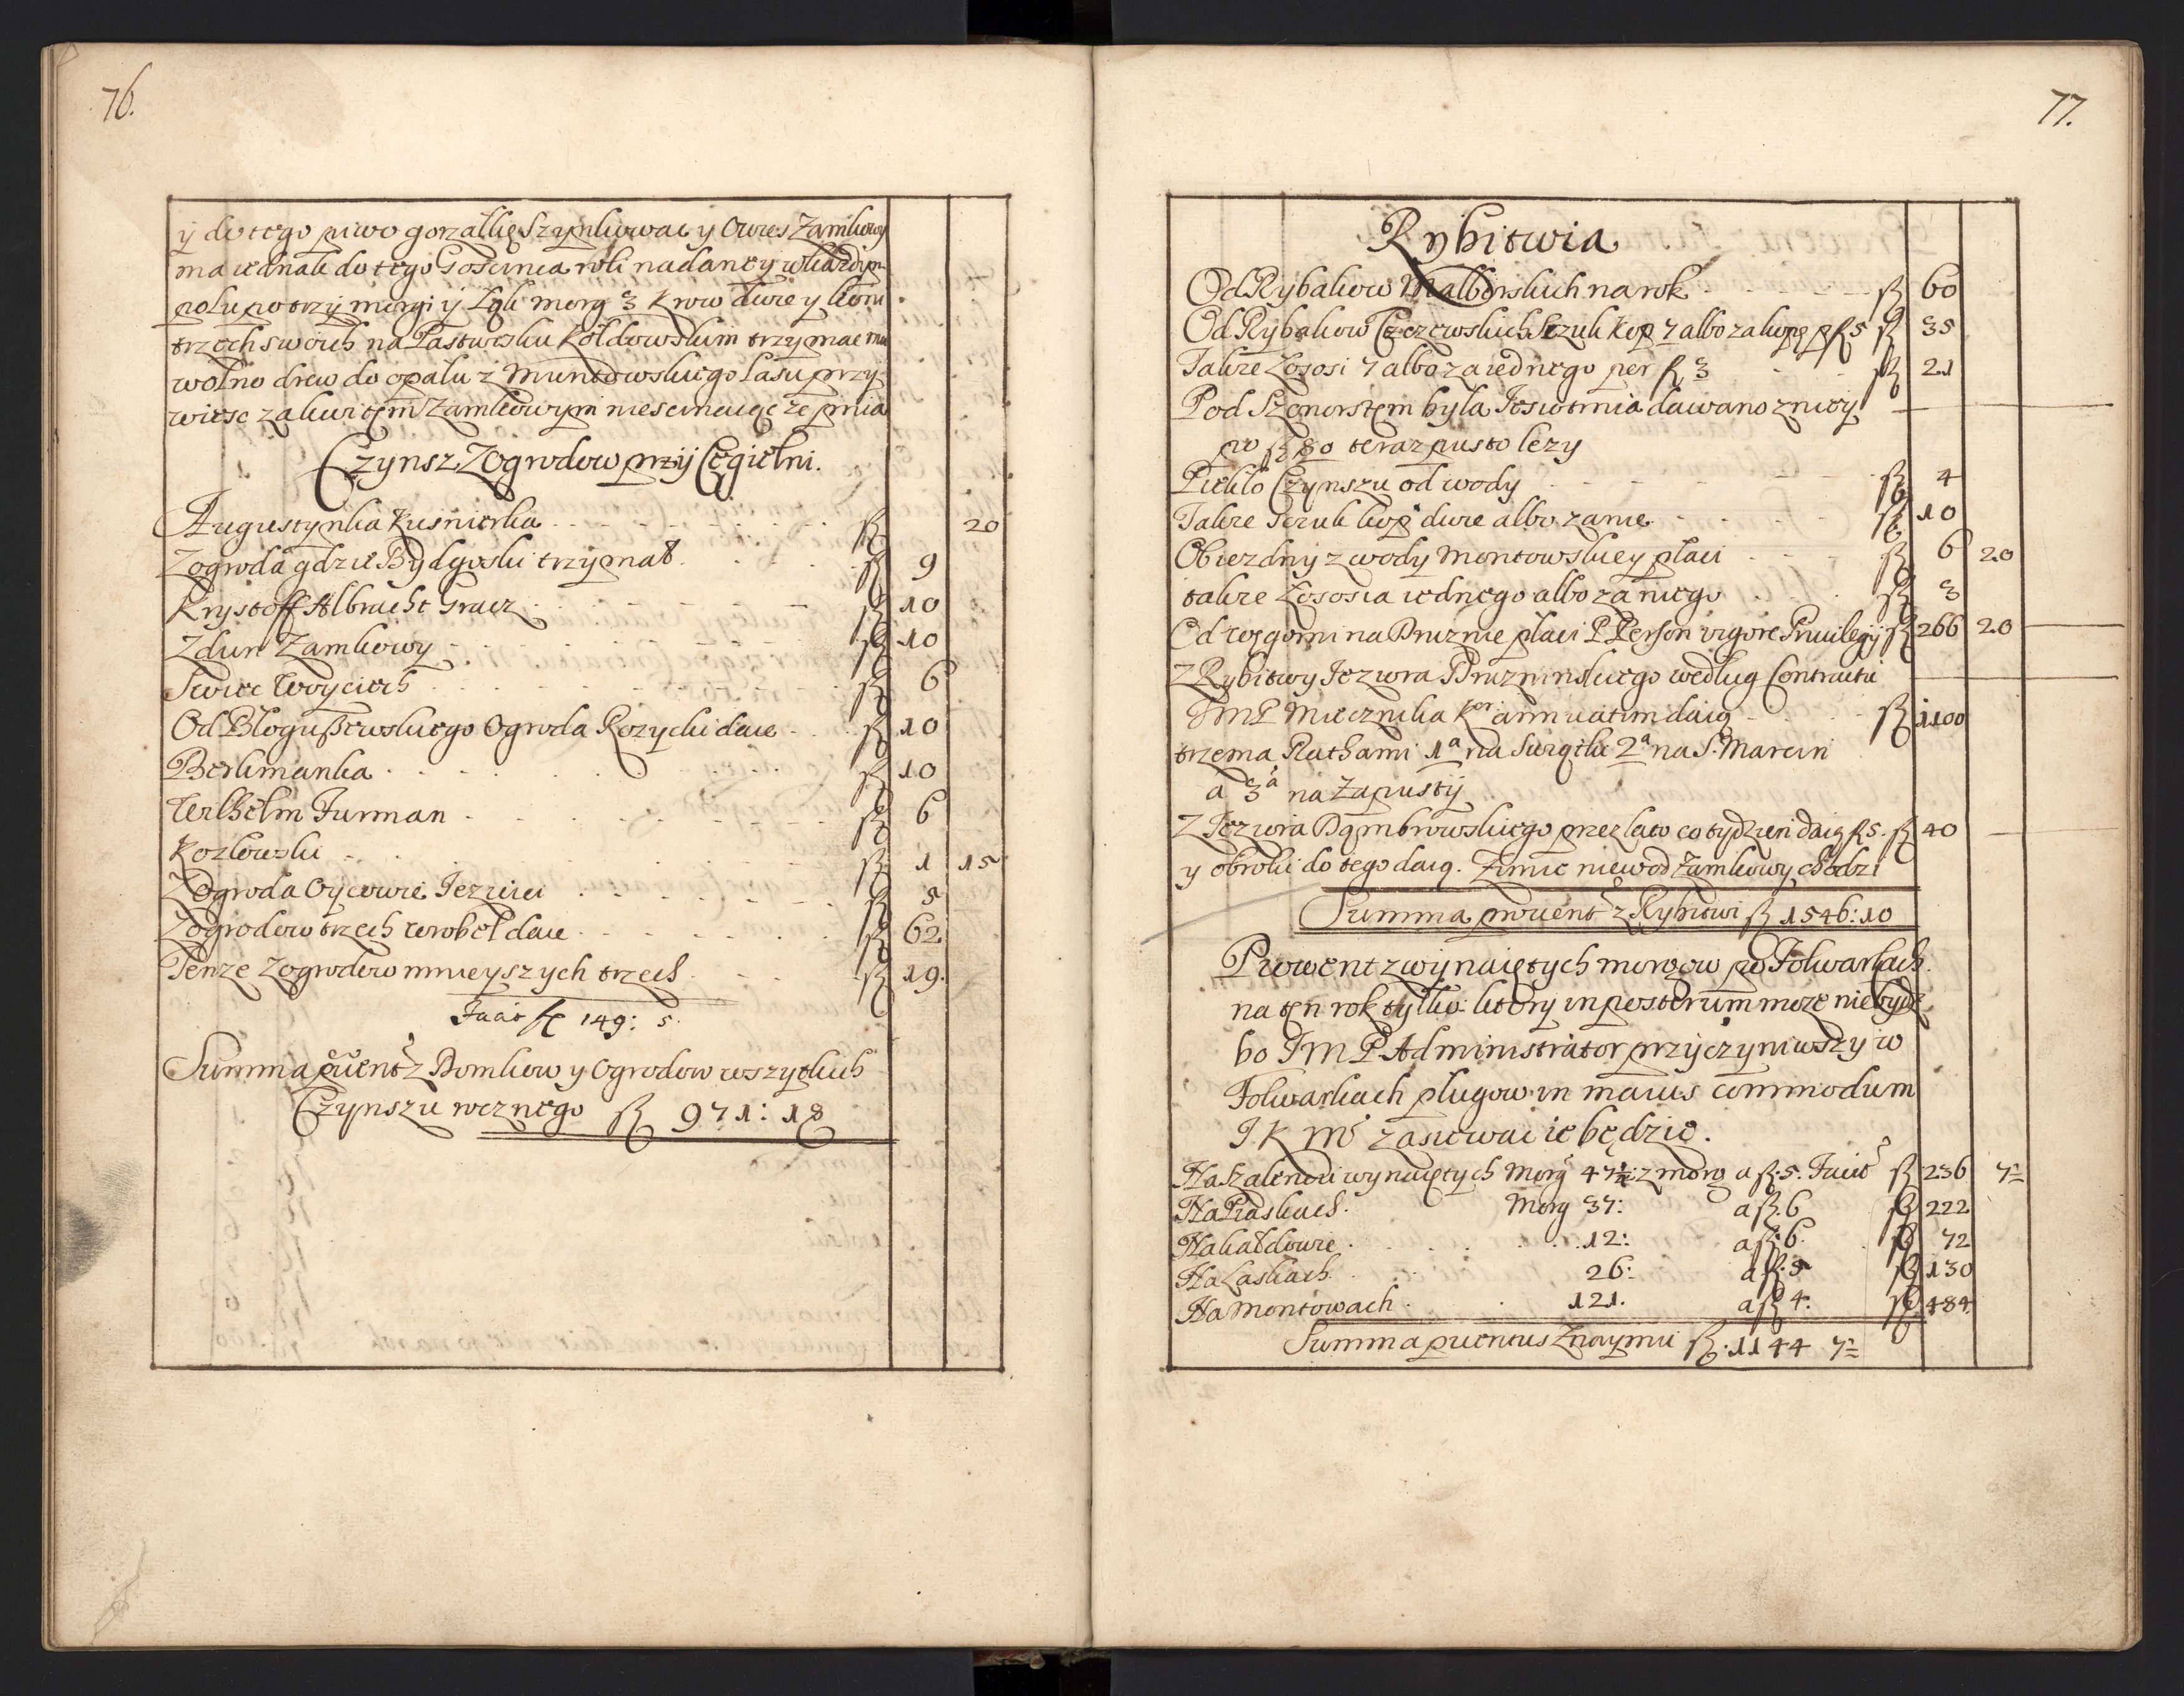 76.
y do tego piwo gorzałkę Szynkować y Owies Zamkowy
ma iednak do tego Gościnca roli nadaney w każdym
polu po trzy morgi y Łąk morg 3 Krow dwie y koni
trzech swoich na Pastwisku Kałdowskim trzymac mu
wolno drew do opału z Muntowskiego Lasu przy
wiesc za kwitem Zamkowym niescinaiąc ze pnia
Czynsz Zogrodow przy Cegielni.
Augustynka Kusnierka fl 20
Zogroda gdzie Bydgoski trzymał fl 9
Krystoff Albracht Gracz fl 10
Zdun Zamkowy fl 10
Swiec Woyciech fl 6
Od Błoguszewskiego Ogroda Rozycki daie fl 10
Berkmanka fl 10
Wilhelm Furman fl 6
Kozłowski fl 1 15
Zogroda Oycowie Jezuici fl 5
Zogrodow trzech Wrobel daie fl 62
Tenze Zogrodow mnieyszych trzech fl 19.
Facit fl 149: 5.
Summa puent z Domkow y Ogrodow wszytkich
Czynszu rcznego fl 971: 18
77.
Rybitwia
Od Rybakow Malborskich na rok fl 60
Od Rybakow Tczewskich Sczuk Kop 7 albo za kopę p fl 5 fl 35
Takze Łososi 7 albo za iednego per fl 3 fl 21
Pod Szonorstem była Jesiotrnia dawano zniey
po fl 80 teraz pusto lezy
Piekło Czynszu od wody fl 4
Takze Sczuk kop dwie albo zanie fl 10
Obiezdny z wody Montowskiey płaci fl 6 20
takze Łososia iednego albo zaniego fl 3
Od węgorni na Druznie płaci P Person vigore Priuilegij fl 266 20
Z Rybitwy Jeziora Druzninskiego według Contractu
JMP Miecznika Kor: annuatim daią fl 1100
trzema Rathami 1a na Swiątki 2a na S. Marcin
a 3a na Zapusty
Z Jeziora Dąmbrowskiego przez lato co tydzien daią fl 5. fl 40
y obroki do tego daią. Zimie niewod Zamkowy chodzi
Summa prouent z Rybitwi fl 1546:10
Prowent z wynaiętych morgow po Folwarkach
na ten rok tylko: ktory in posterum moze nie bydz
bo JMP Administrator przyczyniwszy w
Folwarkach pługow in maius commodum
J K Mci zasiewać ie będzie.
Na Szalenci wynaiętych Morg 47½ z morg a fl: 5. Facit fl 236 7½
Na Piaskach. Morg 37: a fl. 6 fl 222
Na Kałdowie 12: a fl: 6. fl 72
Na Laskach 26: a fl: 5 fl 130
Na Montowach 121. a fl 4. fl 484.
Summa puentus Znaymu fl. 1144 7½